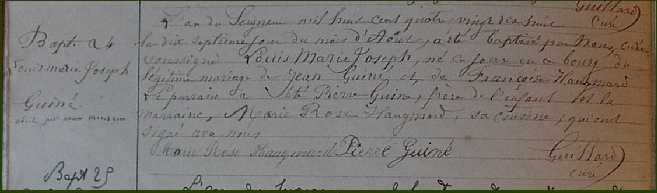 Guillard
curé
L'an du Seigneur mil huit cent quatre vingt dix huit
Bapt 24
le dix septième jour du mois d'Août, a été baptisé par Nous, curé
Louis Marie Joseph
soussigné Louis Marie Joseph, né ce jour, au bourg, du
légitime mariage de Jean Guiné, et de Françoise Haugmard
Guiné
Le parrain a été Pierre Guiné, frère de l'enfant et la
marraine, Marie Rose Haugmard, sa cousine, qui ont
signé avec nous
Marie Rose Haugmard Pierre Guiné
Guillard
curé
Bapt 25